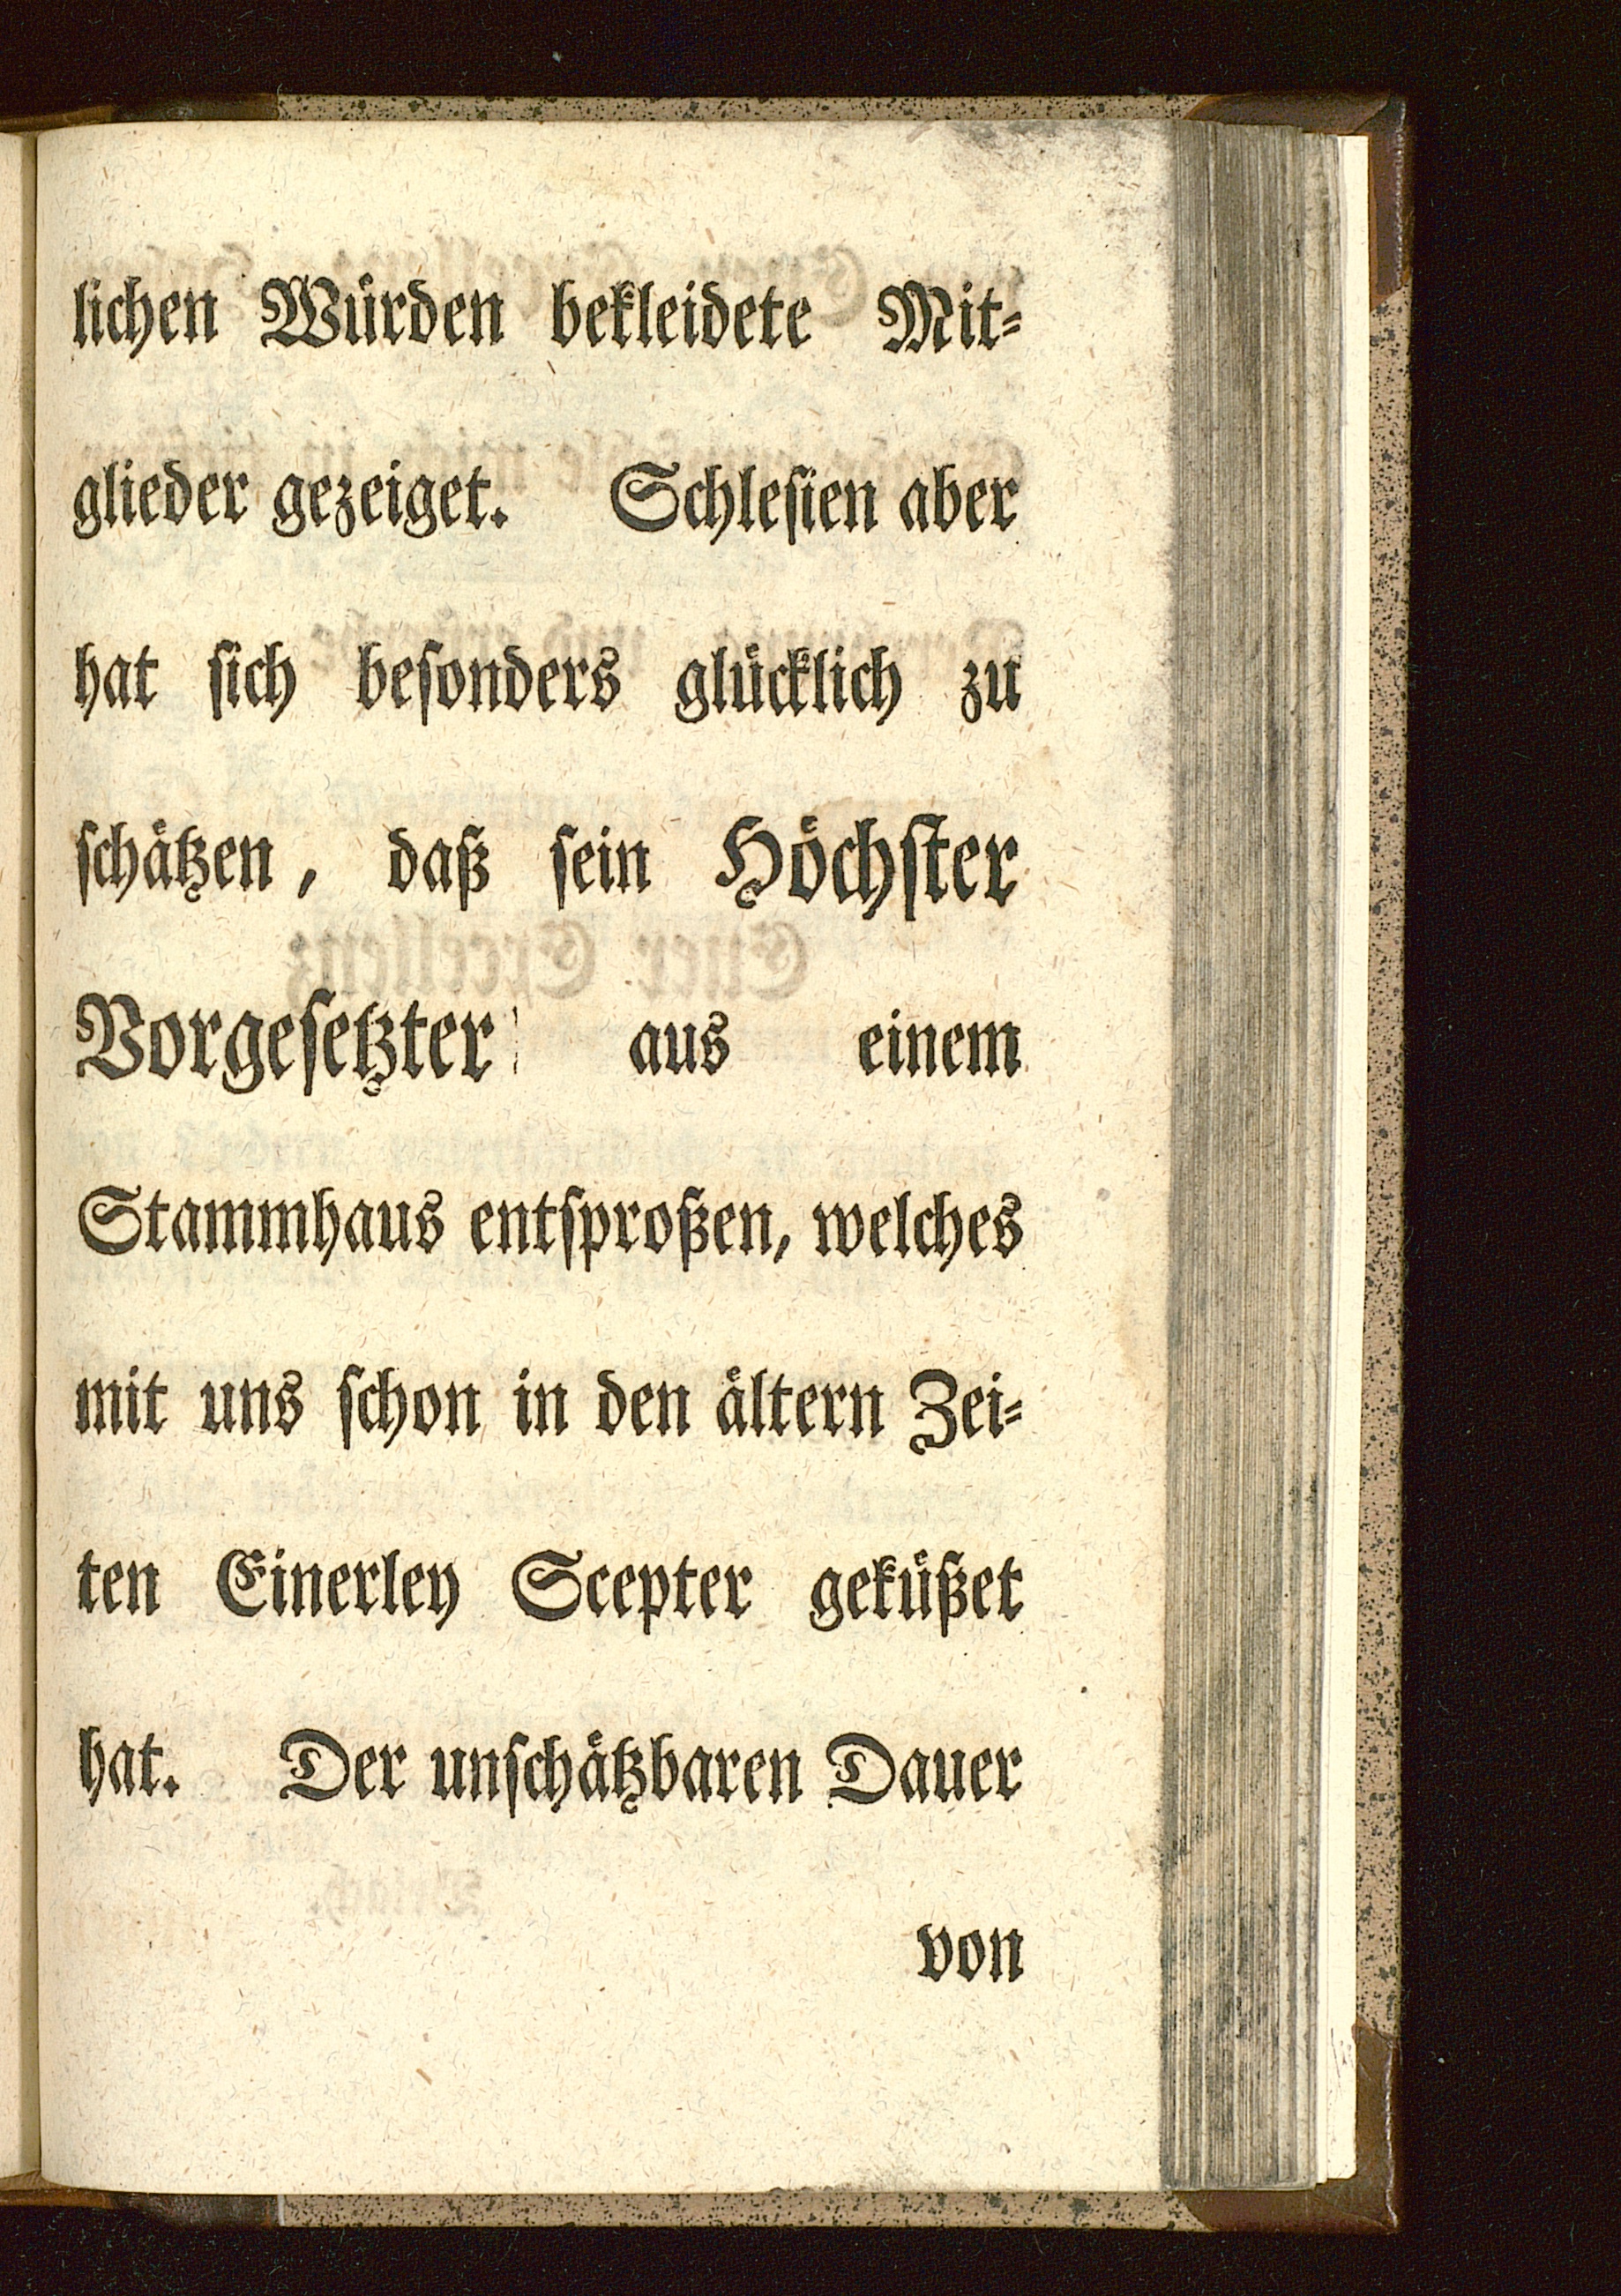 lichen Würden bekleidete Mit-
glieder gezeiget. Schlesien aber
hat sich besonders glücklich zu
schätzen, daß sein Höchster
Vorgesetzter aus einem
Stammhaus entsproßen, welches
mit uns schon in den ältern Zei-
ten Einerley Scepter geküßet
hat. Der unschätzbaren Dauer
von